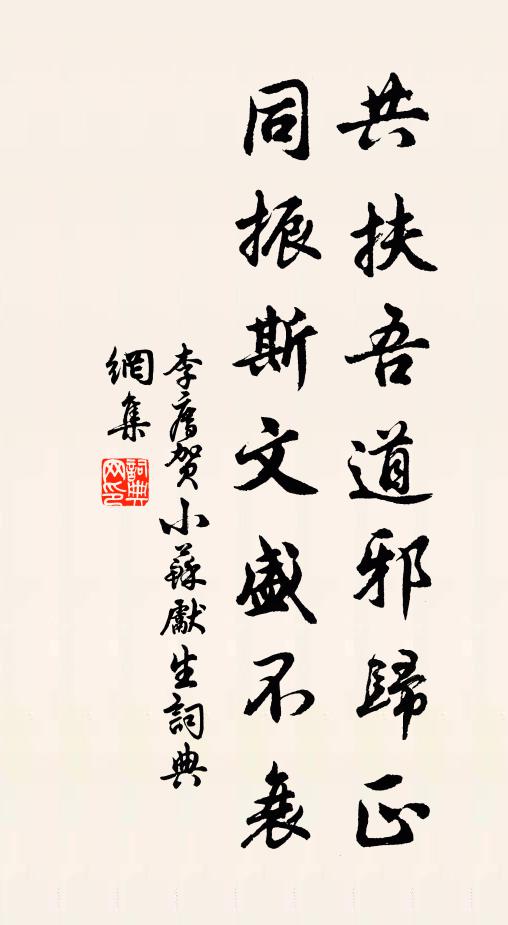 共扶吾道邪歸正
同振斯文盛不衰
李廌賀小蘇獻生詞典
網集
詞典網印